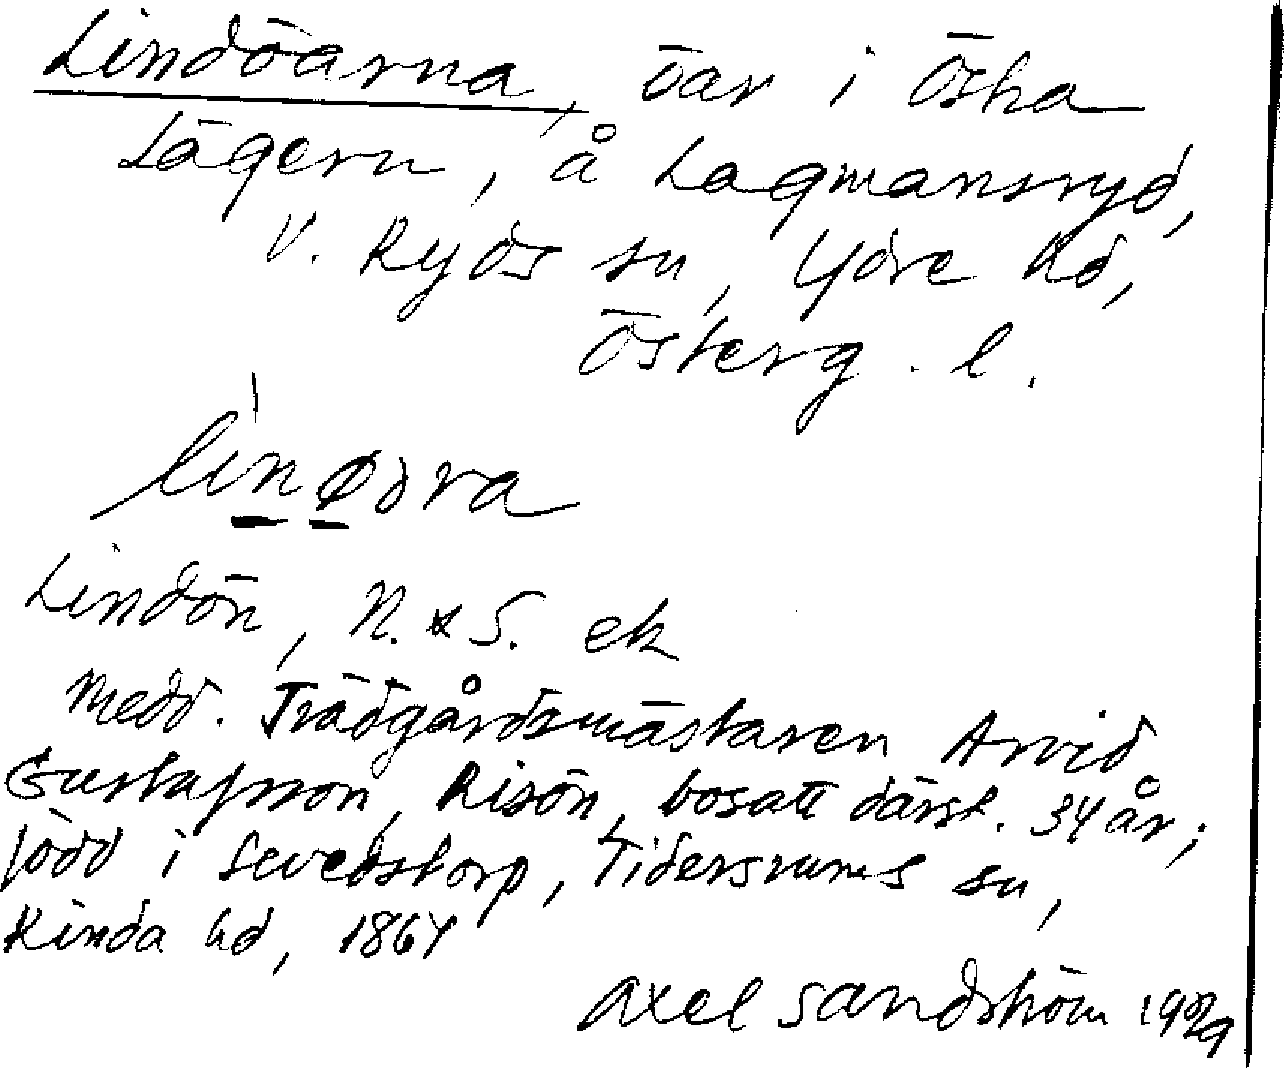 Lindöarna, öar i Östra
Lägern, å Lagmansryd,
V. Ryds sn, Ydre hd,
Österg. l.
Lindön, N. & S. ek
Medd. Trädgårdsmästaren Arvid
Gustafsson, Risön, bosatt därst. 34 år;
född i Sevedstorp, Tidersrums sn,
Kinda hd, 1864
Axel Sandström